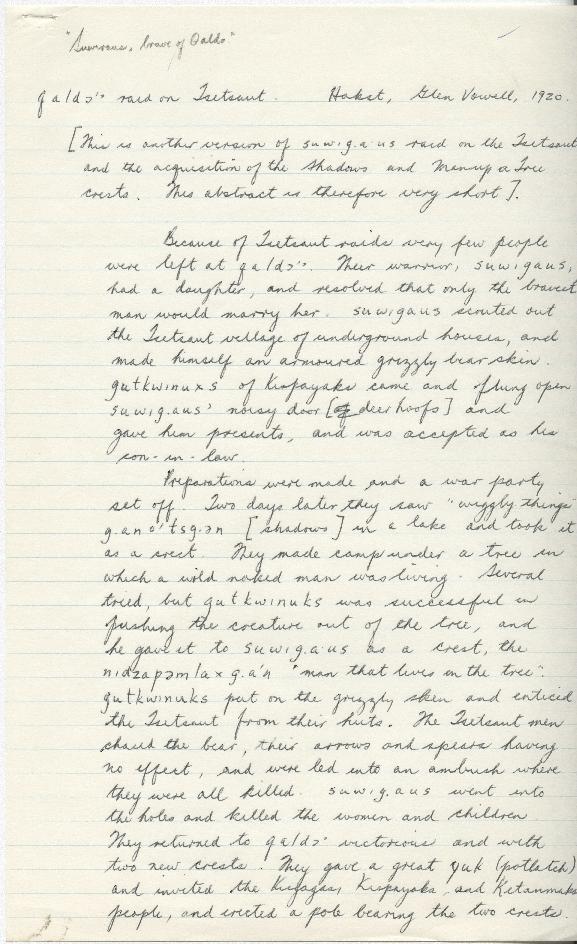 "Suwraus, brave of Qaldo."
qaldɔ's raid on Tsetsaut. Hakst, Glen Vowell, 1920.
[This is another version of suwig.a·us raid on the Tsetsaut
and the acquisition of the Shadows and Man-up a Tree
crests. This abstract is therefore very short].
Because of Tsetsaut raids very few people
were left at qaldɔ's. Their warrior, suwigaus,
had a daughter, and resolved that only the bravest
man would marry her. suwigaus scouted out
the Tsetsaut village of underground houses, and
made himself an armoured grizzly bear skin.
gutkwinuxs of Kispayaks came and flung open
suwig.aus' noisy door [of deer hoofs] and
gave him presents, and was accepted as his
son-in-law.
Preparations were made and a war party
set off. Two days later they saw "wiggly things"
g.anɔ'tsg.ən [shadows] in a lake and took it
as a crest. They made camp under a tree in
which a wild naked man was living. Several
tried, but gutkwinuks was successful in
pushing the creature out of the tree, and
he gave it to suwig.a·us as a crest, the
nidzapəmlaxg.a'n "man that lives in the tree".
gutkwinuks put on the grizzly skin and enticed
the Tsetsaut from their huts. The Tsetsaut men
chased the bear, their arrows and spears having
no effect, and were led into an ambush where
they were all killed. suwig.aus went into
the holes and killed the women and children
They returned to qaldɔ' victorious and with
two new crests. They gave a great yuk (potlatch)
and invited the Kisgagas, Kispayaks, and Kitanmaks
people, and erected a pole bearing the two crests.